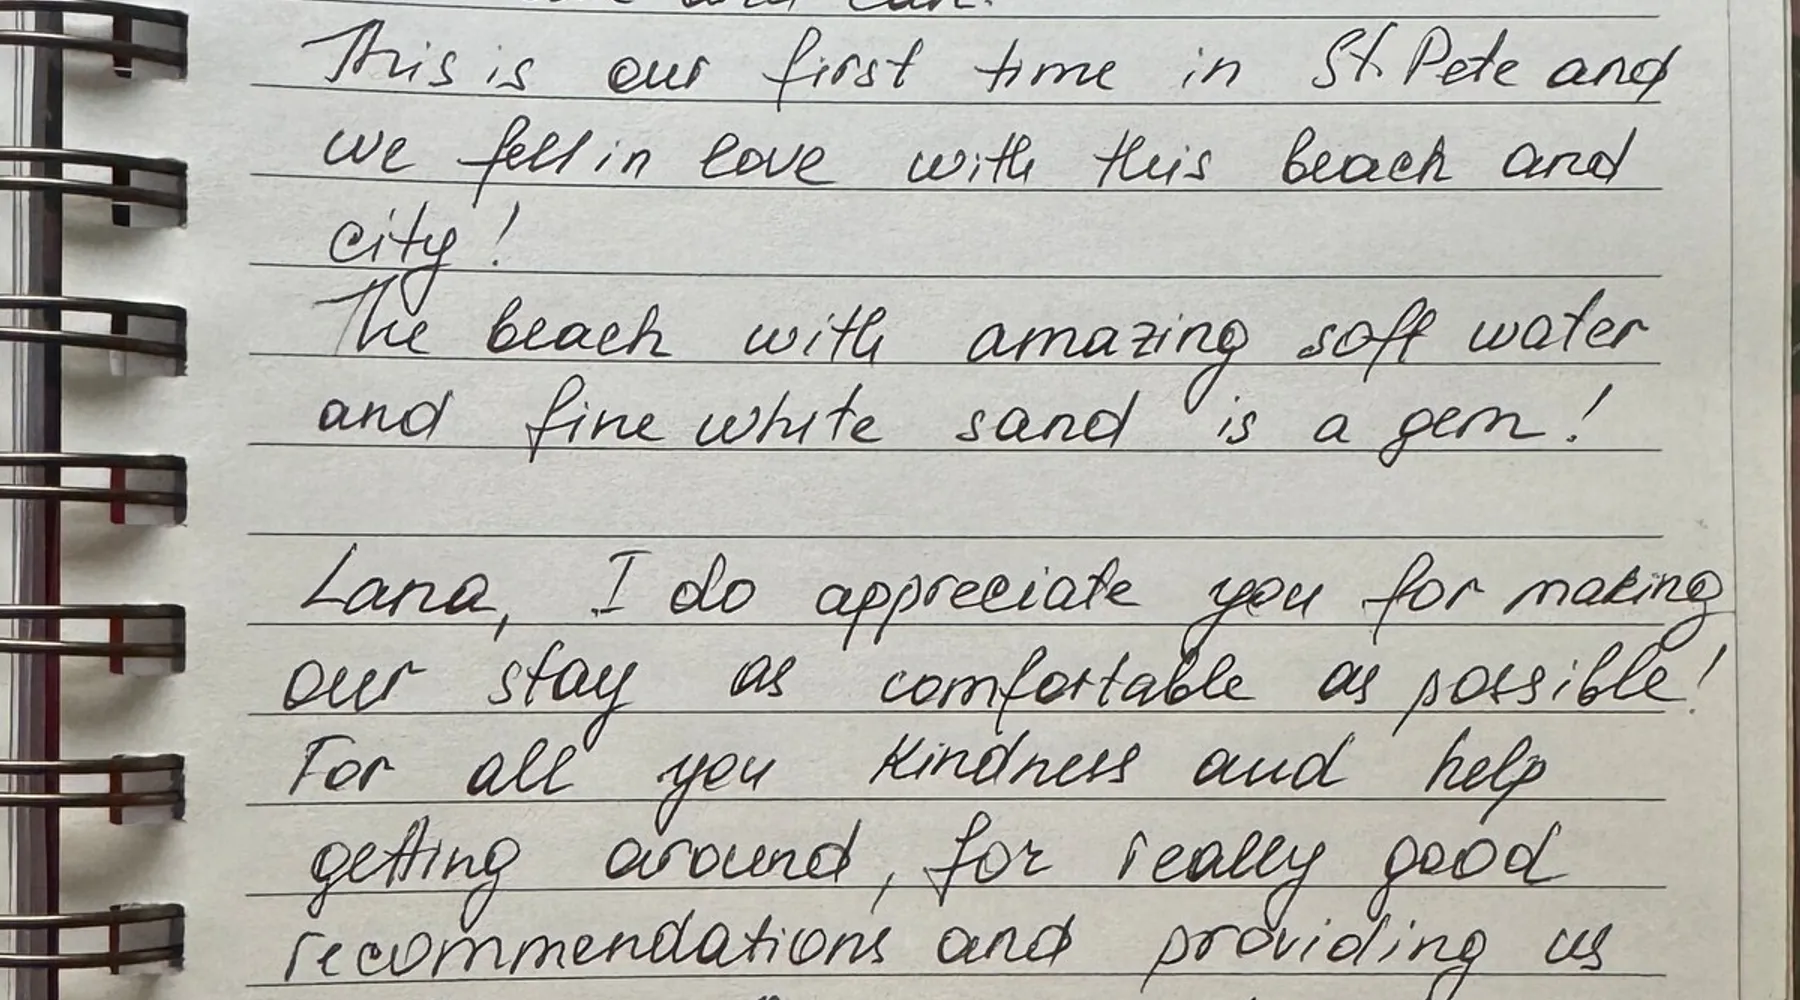 This is our first time in St. Pete and
we fell in love with this beach and
city!
The beach with amazing soft water
and fine white sand is a gem!
Lana, I do appreciate you for making
our stay as comfortable as possible!
For all you kindness and help
getting around, for really good
recommendations and providing us